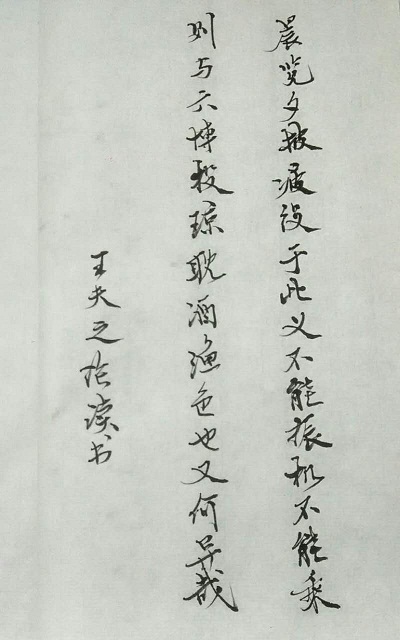 晨览夕披疲役于此义不能振机不能乘
则与六博投琼耽酒渔色也又何异哉
王夫之论读书